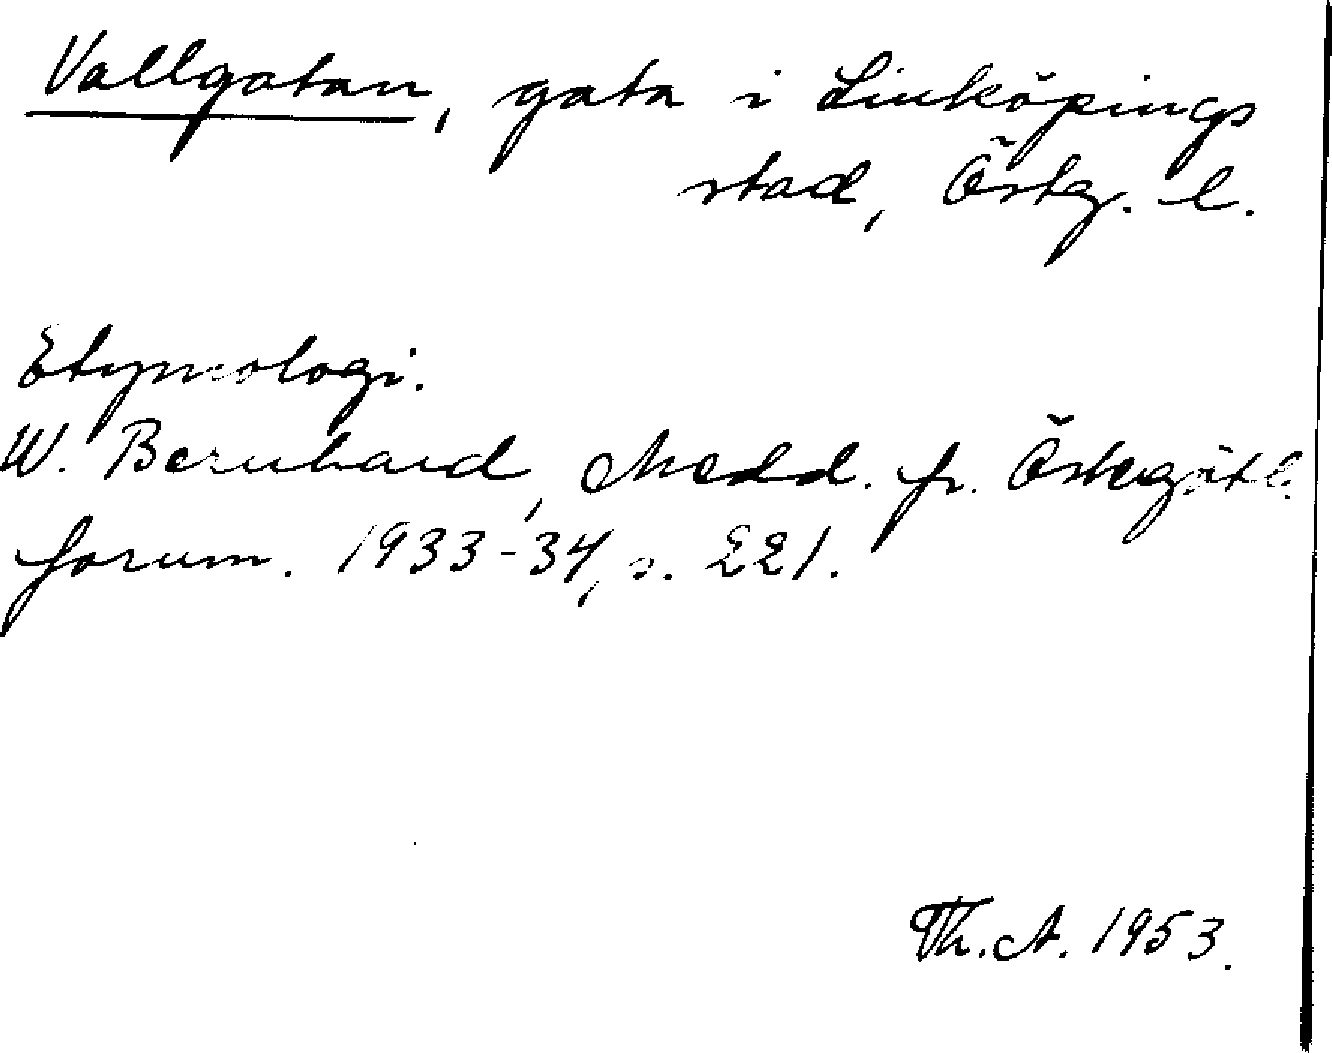 Vallgatan, gata i Linköpings
stad, Östg. l.
Etymologi.
W. Bernhard, Medd. fr. Östergötl.
fornm. 1933-34, s. 221.
Th. A. 1953.